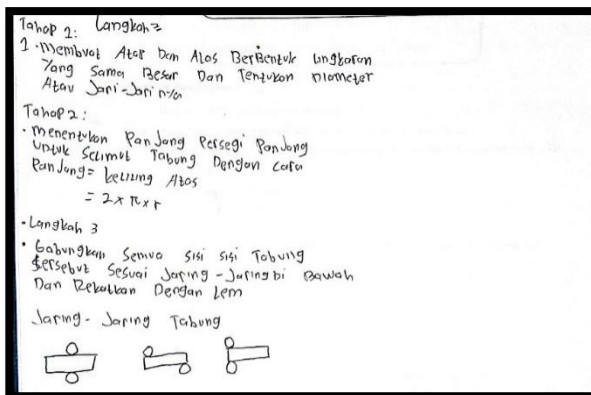 Tahap 1: Langkah 2
1. Membuat Atap Dan Alas BerBentuk lingkaran
Yang Sama Besar Dan Tentukan Diameter
Atau Jari-Jari nya
Tahap 2:
• Menentukan Panjang Persegi Panjang
Untuk Selimut Tabung Dengan cara
Panjang = keliling Atas
= 2 x π x r
• Langkah 3
• Gabungkan Semua sisi sisi Tabung
tersebut Sesuai Jaring-Jaring bi Bawah
Dan Rekatkan Dengan Lem
Jaring-Jaring Tabung